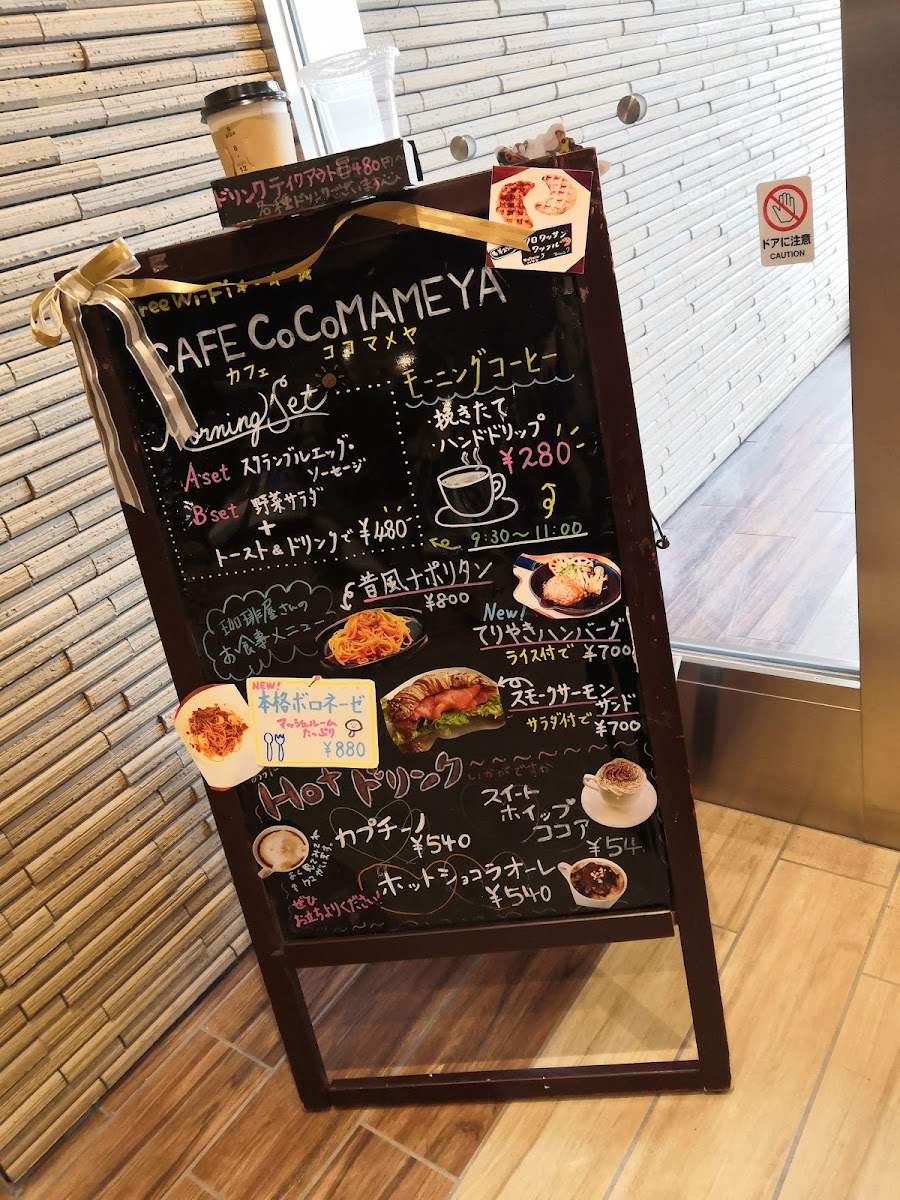 ドリンクテイクアウト
480円
各種ドリンクございます
クロワッサン
ワッフル
ドアに注意
CAUTION
Free Wi-Fi
CAFE CoCoMAMEYA
カフェ ココマメヤ
Morning Set
A set スクランブルエッグ。
ソーセージ
B set 野菜サラダ
+
トースト&ドリンクで ¥480
モーニングコーヒー
挽きたて
ハンドドリップ
¥280
9:30〜11:00
珈琲屋さんの
お食事メニュー
昔風ナポリタン
¥800
New!
てりやきハンバーグ
ライス付で ¥700
NEW!
本格ボロネーゼ
マッシュルーム
たっぷり
¥880
スモークサーモン
サンド
サラダ付で ¥700
Hot ドリンク
いかがですか
カプチーノ
¥540
スイート
ホイップ
ココア
¥54
ホットショコラオーレ
¥540
ぜひ
お立ちよりください!